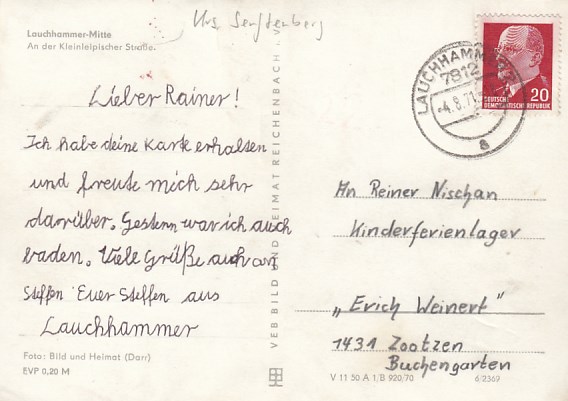 Krs. Senftenberg
Lauchhammer-Mitte
An der Kleinleipischer Straße.
Lieber Rainer!
Ich habe deine Karte erhalten
und freute mich sehr
darüber. Gestern war ich auch
baden. Viele Grüße auch an
Steffen Euer Steffen aus
Lauchhammer
Foto: Bild und Heimat (Darr)
EVP 0,20 M
VEB BILD UND HEIMAT REICHENBACH i. V.
LAUCHHAMMER
7812
-4.8.71
a
DEUTSCHE
DEMOKRATISCHE REPUBLIK
20
An Reiner Nischan
Kinderferienlager
„Erich Weinert"
1431 Zootzen
Buchengarten
V 11 50 A 1/B 920/70
6/2369